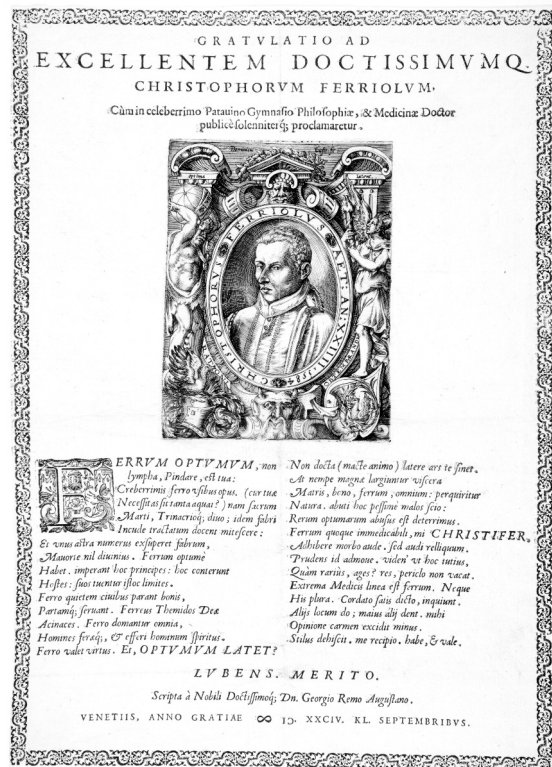 GRATVLATIO AD
EXCELLENTEM DOCTISSIMVMQ.
CHRISTOPHORVM FERRIOLVM,
Cùm in celeberrimo Patauino Gymnasio Philosophiæ, & Medicinæ Doctor
publicè solenniterq́; proclamaretur.
optima latent
CHRISTOPHORVS FERRIOLVS AET: AN: XXIIII. 1584
FERRVM OPTVMVM, non
lympha, Pindare, est tua:
Creberrimis ferro vsibus opus. (cur tuæ
Necessitas sit tanta aquai?) nam sacrum
Marti, Trinacrioq́; diuo; idem fabri
Incude tractatum docent mitescere:
Et vnus astra numerus exsuperet fabrum,
Mauorte nil diuinius. Ferrum optumè
Habet. imperant hoc principes: hoc conterunt
Hostes: suos tuentur istoc limites.
Ferro quietem ciuibus parant bonis,
Partamq́; seruant. Ferreus Themidos Deæ
Acinaces. Ferro domantur omnia,
Homines feræq́;, & efferi hominum spiritus.
Ferro valet virtus. Et, OPTVMVM LATET?
Non docta (macte animo) latere ars te sinet.
At nempe magnæ largiuntur viscera
Matris, bono, ferrum, omnium: perquiritur
Natura. abuti hoc pessimè malos scio:
Rerum optumarum abusus est deterrimus.
Ferrum quoque immedicabili, mi CHRISTIFER,
Adhibere morbo aude. sed audi relliquum.
Prudens id admoue. viden' vt hoc tutius,
Quàm rariùs, ages? res, periclo non vacat.
Extrema Medicis linea est ferrum. Neque
His plura. Cordato satis dicto, inquiunt.
Alijs locum do; maius alij dent. mihi
Opinione carmen excidit minus.
Stilus dehiscit. me recipio. habe, & vale.
LVBENS. MERITO.
Scripta à Nobili Doctissimoq́; Dn. Georgio Remo Augustano.
VENETIIS, ANNO GRATIAE ∞ IↃ. XXCIV. KL. SEPTEMBRIBVS.